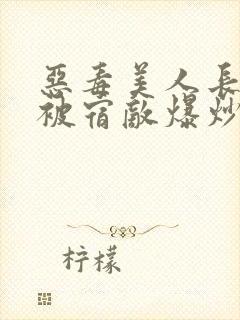 惡毒美人長
被宿敵爆炒
柠檬